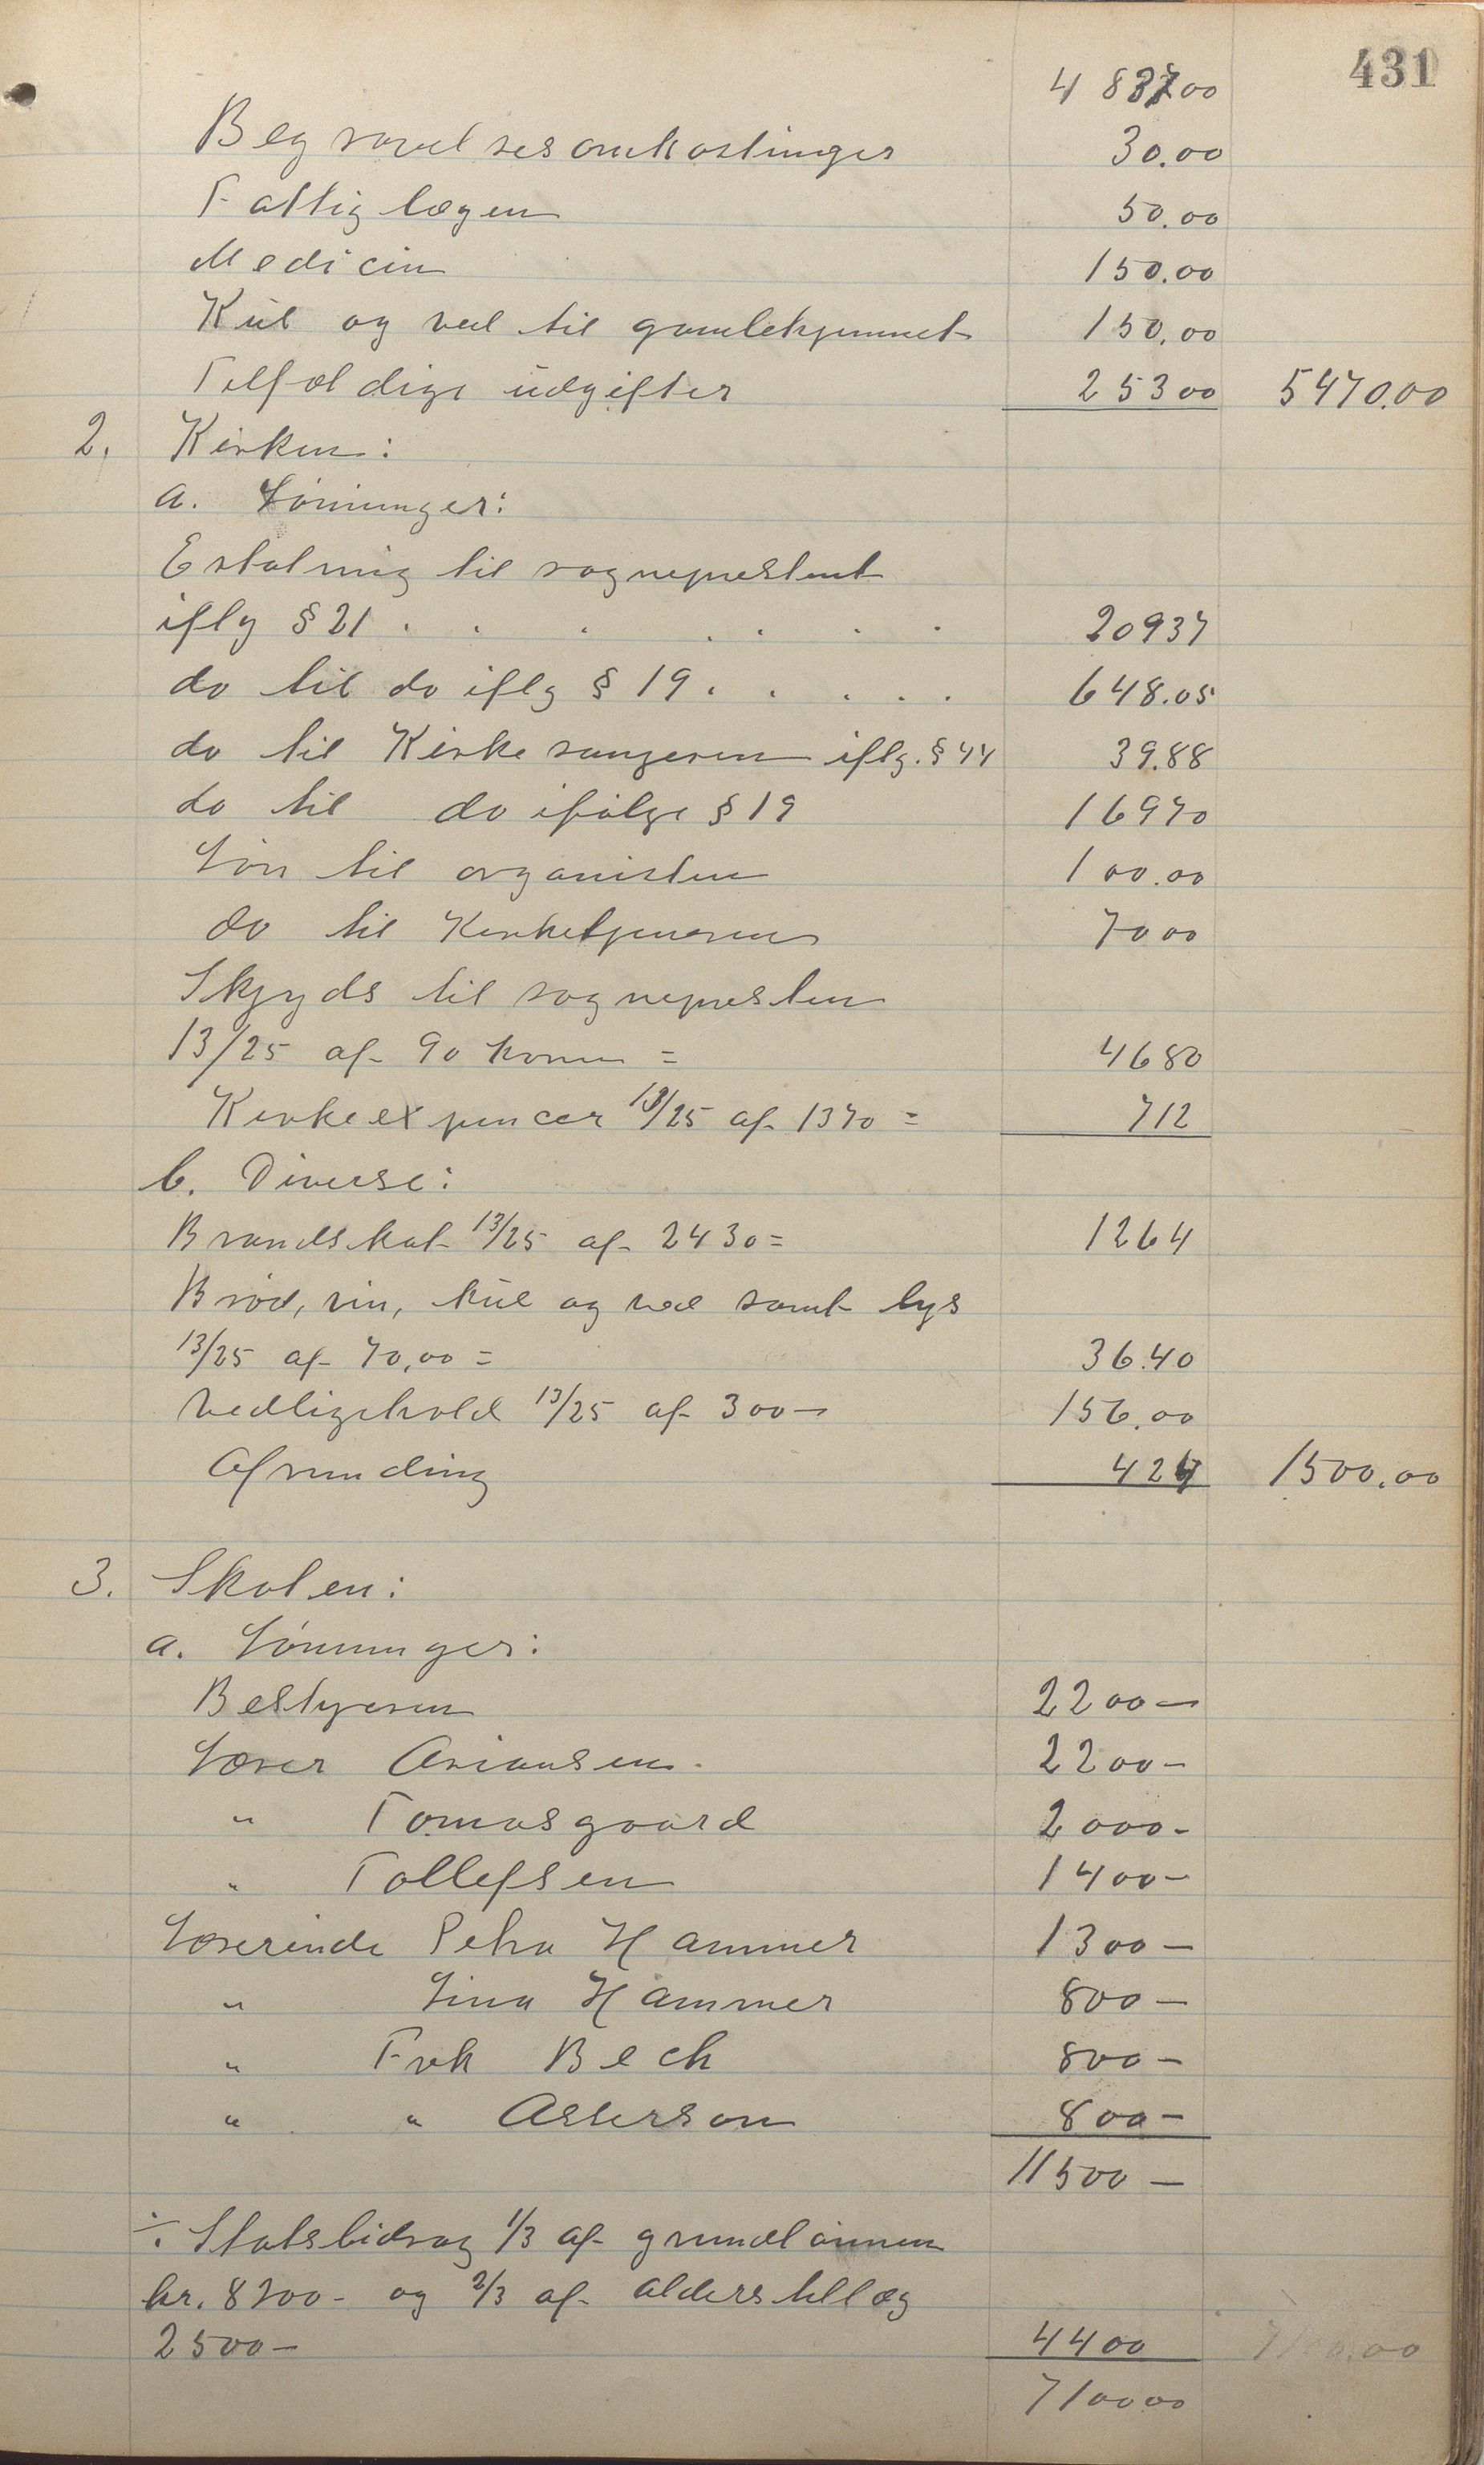 431
4 837 00
Begravelsesomkostninger 30.00
Fattiglægen 50.00
Medicin 150.00
Kul og ved til gamlehjemmet 150.00
Tilfældige udgifter 253 00 5470.00
2. Kirken:
a. Lønninger:
Erstatning til sognepresten
iflg § 21 . . . . . . . 209 37
do til do iflg § 19 . . . . . 648.05
do til Kirkesangeren iflg. § 44 39.88
do til do ifølge § 19 169 70
Løn til organisten 100.00
do til Kirketjeneren 70 00
Skyds til sognepresten
13/25 af 90 kroner = 46 80
Kirkeexpencer 13/25 af 13 70 = 7 12
b. Diverse:
Brandskat 13/25 af 24 30 = 12 64
Brød, vin, kul og ved samt lys
13/25 af 70,00 = 36.40
Vedligehold 13/25 af 300 - 156.00
Afrunding 4 24 1500.00
3. Skolen:
a. Lønninger:
Bestyreren 2200 -
Lærer Ariansen. 2200 -
" Tomasgaard 2000 -
" Tollefsen 1400 -
Lærerinde Petra Hammer 1300 -
" Lina Hammer 800 -
" Frk Bech 800 -
" " Asserson 800 -
11500 -
÷ Statsbidrag 1/3 af grundlønnen
kr. 8200 - og 2/3 af alderstillæg
2500 - 4400
7100 00